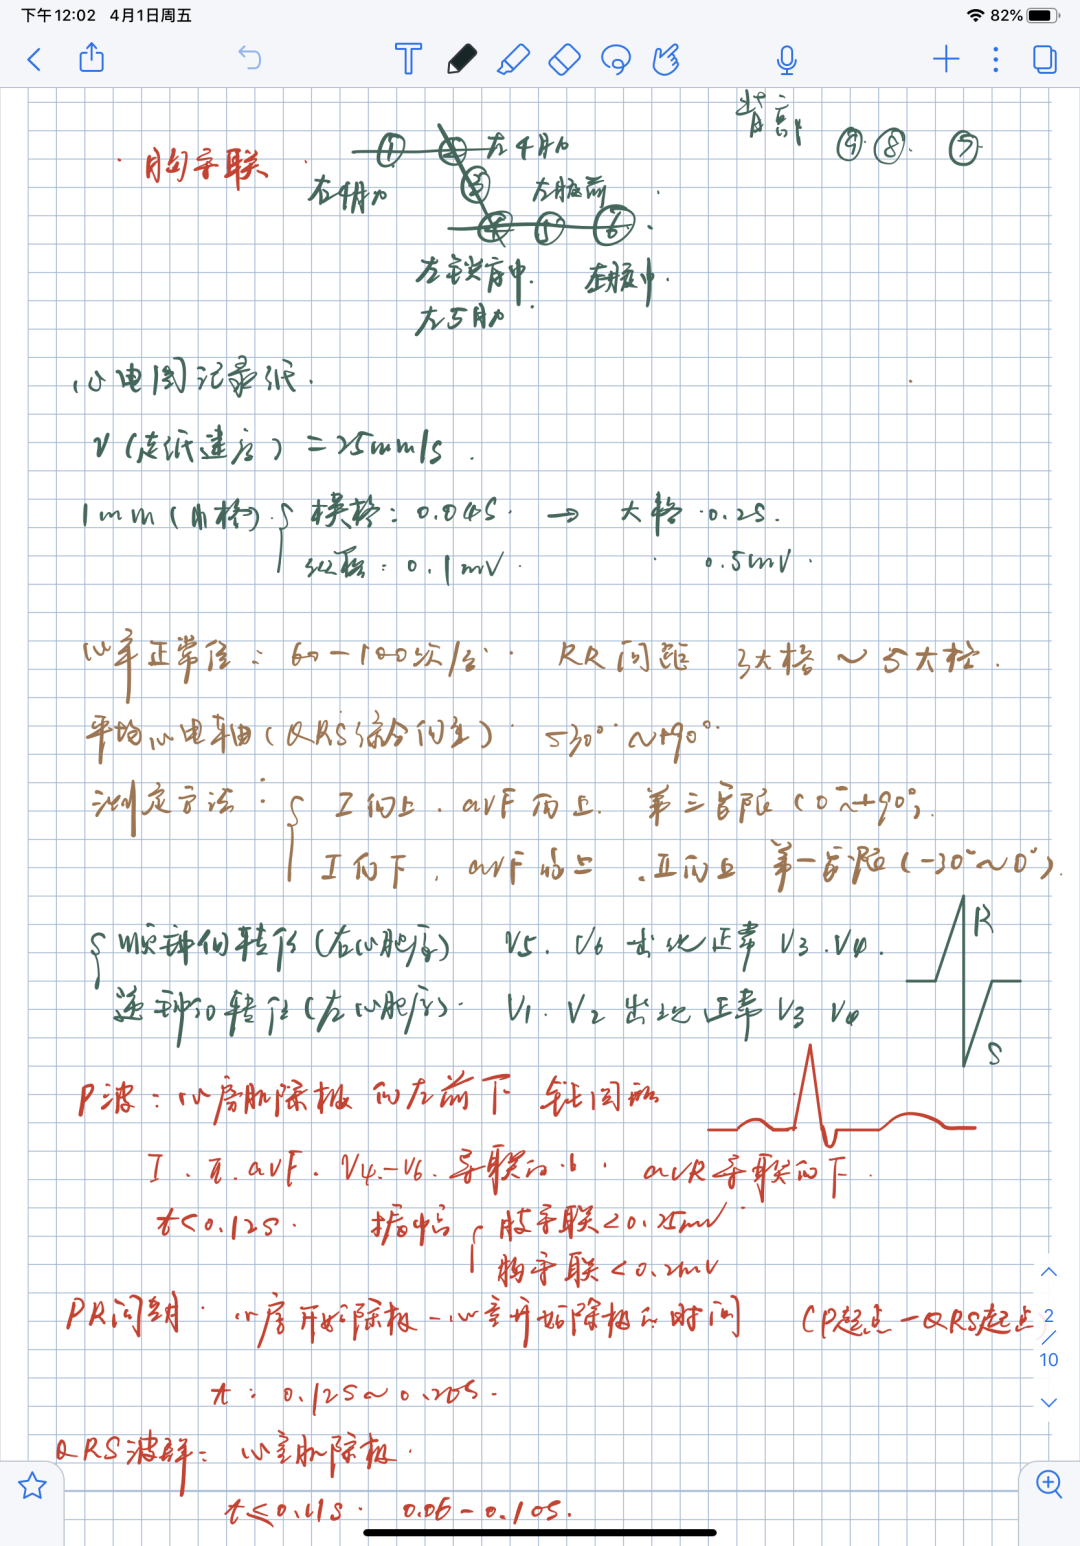 下午12:02 4月1日周五 82%
背部 ⑨ ⑧ ⑦
胸导联 ① ② 左4肋
右4肋 ③ 左腋前
④ ⑤ ⑥
左锁骨中 左腋中
左5肋
心电图记录纸.
V(走纸速度) = 25mm/s.
1mm(小格) { 横格: 0.04s. → 大格 0.2s.
纵格: 0.1mV. 0.5mV.
心率正常值: 60-100次/分 RR间距 3大格~5大格.
平均心电轴(QRS综合向量) -30°~+90°
测定方法: { I向上. avF向上. 第三象限(0°~+90°)
I向下. avF向上. II向上 第一象限(-30°~0°).
{ 顺钟向转位(右心肥厚) V5. V6 出现正常 V3.V4.
R
逆钟向转位(左心肥厚). V1. V2 出现正常 V3 V4
S
P波: 心房肌除极 向左前下 钝圆形
I. II. avF. V4-V6. 导联向上. avR导联向下.
t<0.12s. 振幅 { 肢导联<0.25mV
胸导联<0.2mV
PR间期: 心房开始除极-心室开始除极的时间 (P起点-QRS起点
t: 0.12s~0.20s.
QRS波群: 心室肌除极.
t≤0.11s. 0.06-0.10s.
2
/
10